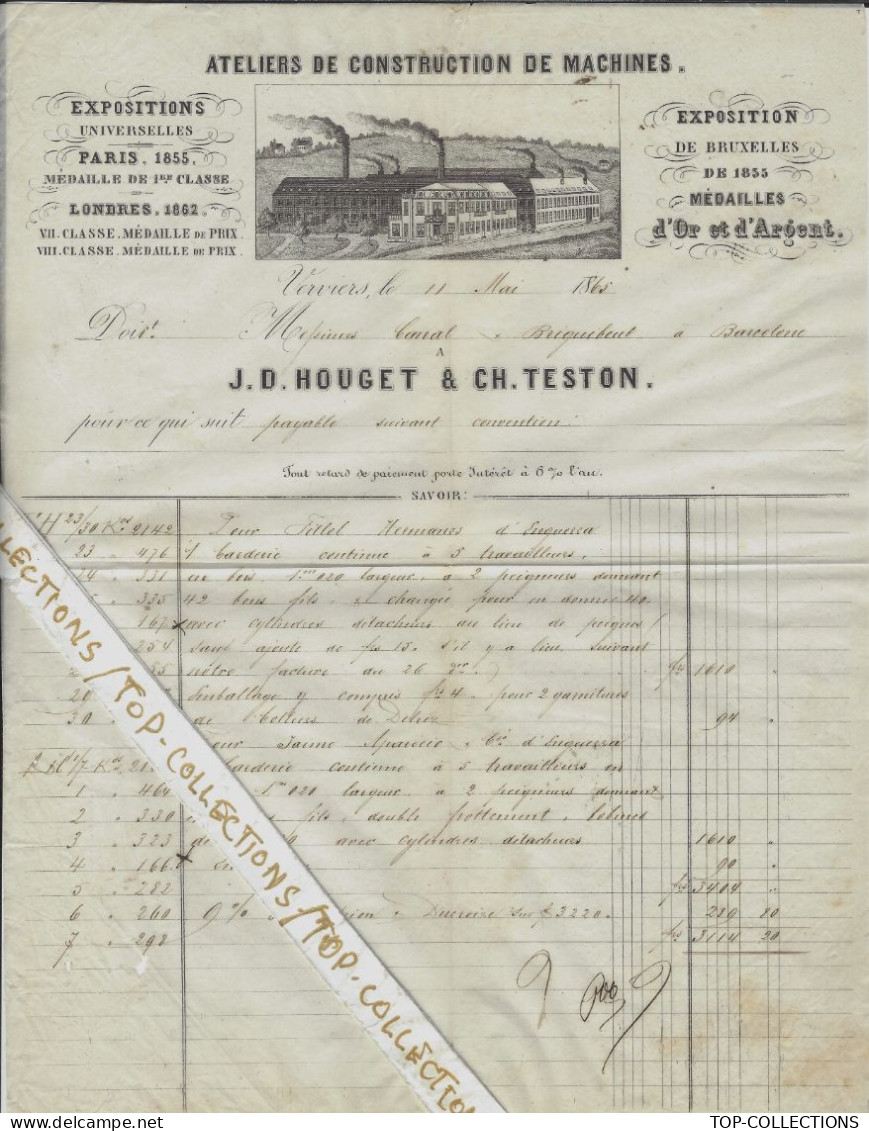 ATELIERS DE CONSTRUCTION DE MACHINES.
EXPOSITIONS
UNIVERSELLES
PARIS. 1855.
MÉDAILLE DE 1RE CLASSE
LONDRES. 1862.
VII. CLASSE. MÉDAILLE DE PRIX.
VIII. CLASSE. MÉDAILLE DE PRIX.
EXPOSITION
DE BRUXELLES
DE 1855
MÉDAILLES
d'Or et d'Argent.
Verviers, le 11 Mai 1865
Doivt. Messieurs & à Barcelone
A
J.D. HOUGET & CH. TESTON.
pour ce qui suit payable suivant convention:
Tout retard de paiement porte Intérêt à 6% l'an.
SAVOIR:
H 23/30 Kos 2142 Pour Hermanos d'Enguerra
23 " 476 1 Carderie continue à 5 travailleurs,
24 " 331 en bois 1.m020 largeur, à 2 peigneurs donnant
" 335 42 bons fils, changée pour en donner 40
" 167 avec cylindres détacheurs au lieu de peignes
" 254 sauf ajoute de frs 15. s'il y a lieu suivant
notre facture du 26 frs 1610 "
Emballage y compris frs 4. pour 2 garnitures
30 de 94 "
Pour Jaime Aparicio & Cie d'Enguerra
1/7 Kos Carderie continue à 5 travailleurs en
1 " 464 020 largeur à 2 peigneurs donnant
2 " 330 fils, double frottement,
3 " 323 avec cylindres détacheurs 1610 "
4 " 166 90 "
5 " 282 frs 3404 "
6 " 260 9% Ducroire sur f 3220. 289 80
7 " 298 frs 3114 20
COLLECTIONS / TOP-COLLECTIONS / TOP-COLLECTIONS / TOP-COLLECTION
TOP-COLLECTIONS